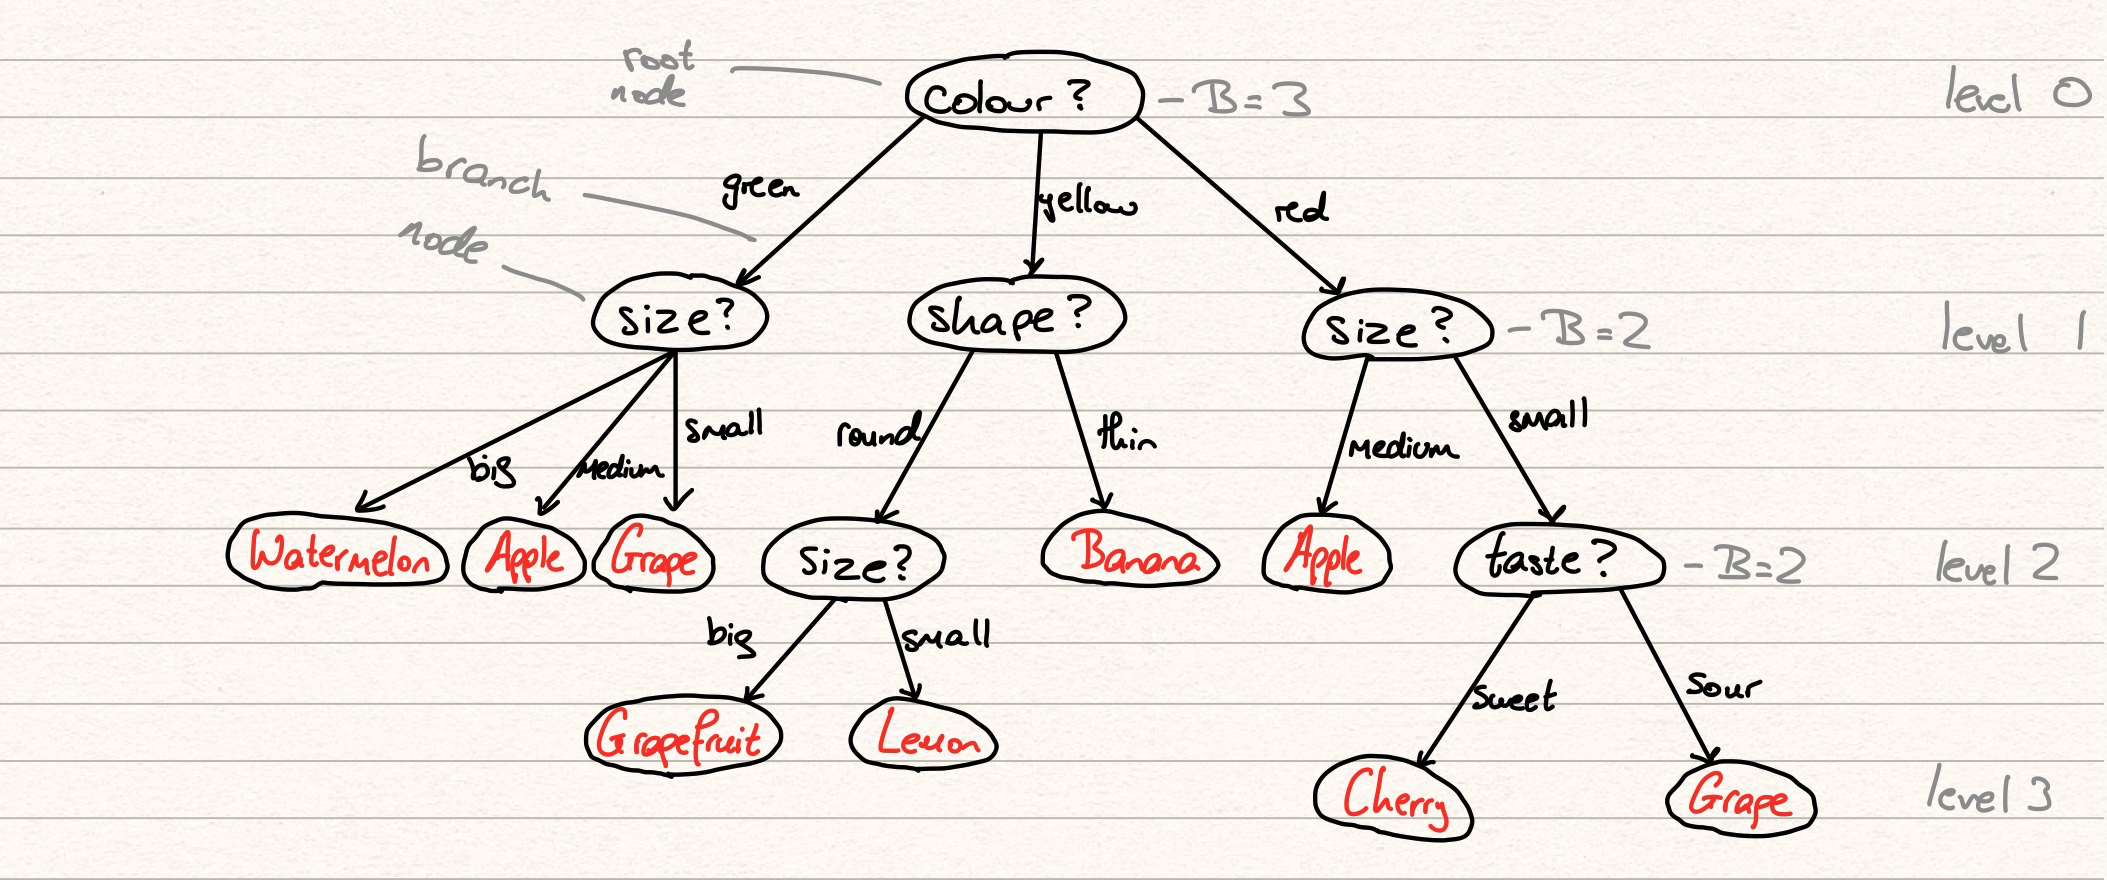 root
node
colour?
- B=3
level 0
branch
green
yellow
red
node
size?
shape?
size?
- B=2
level 1
big
medium
small
round
thin
medium
small
Watermelon
Apple
Grape
size?
Banana
Apple
taste?
- B=2
level 2
big
small
sweet
sour
Grapefruit
Lemon
Cherry
Grape
level 3